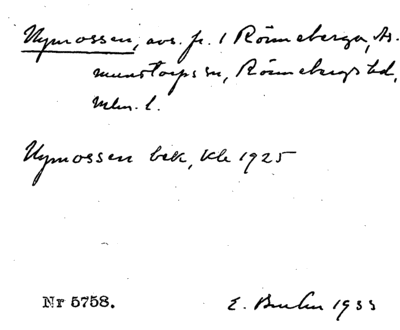 Nymossen, avs. fr. 1 Rönneberga, As-
mundtorps sn, Rönnebergs hd,
Mlm. l.
Nymossen bek, kk 1925
Nr 5758. E. Bruhn 1933